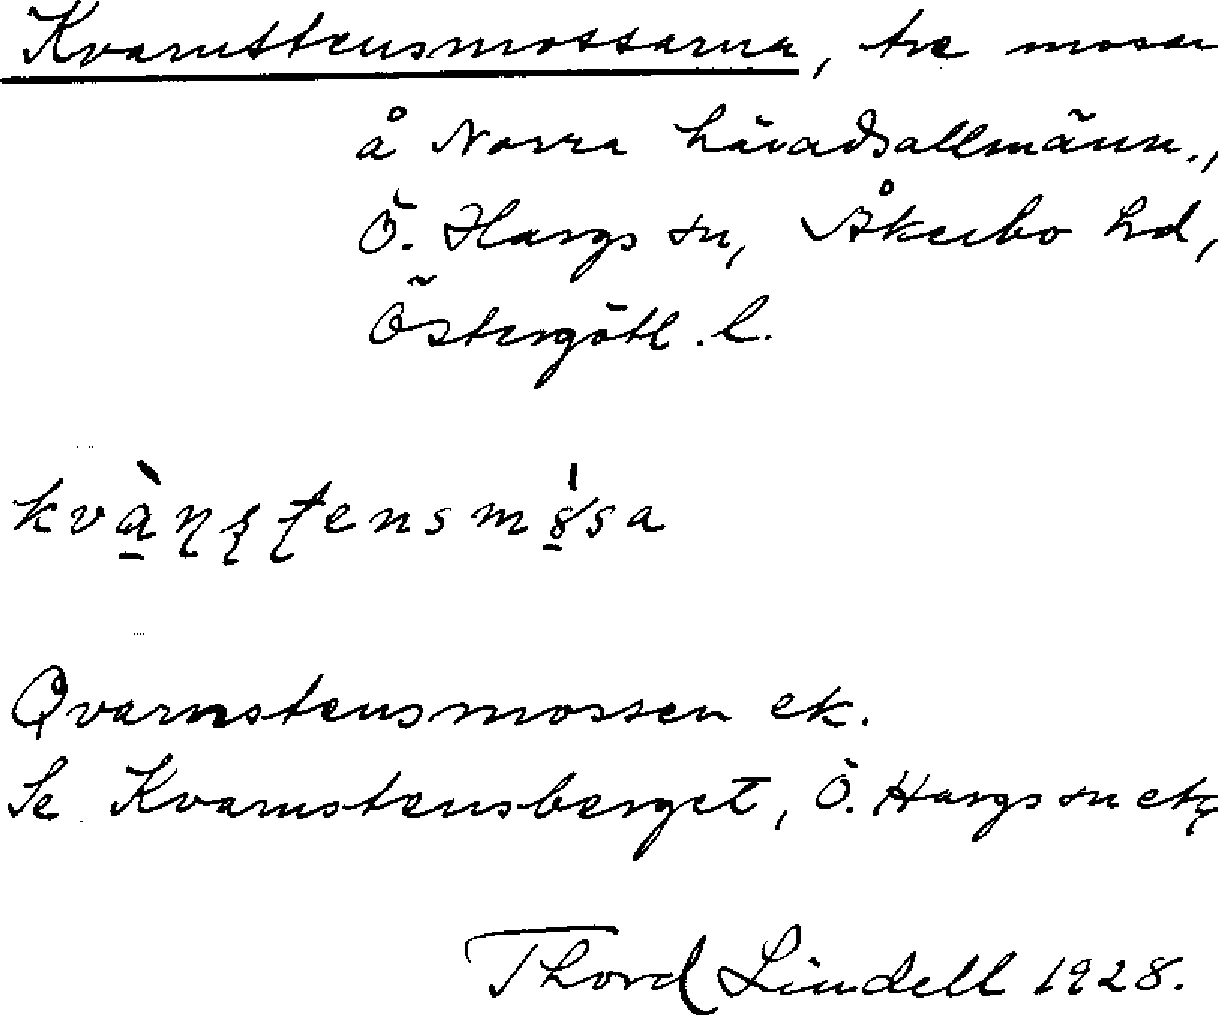 Kvarnstensmossarna, tre mossar
å Norra häradsallmänn.,
Ö. Hargs sn, Åkerbo hd,
Östergötl. l.
kvàn̥ʂʈensmósa
Qvarnstensmossen ek.
Se Kvarnstensberget, Ö. Hargs sn etc
Thord Lindell 1928.